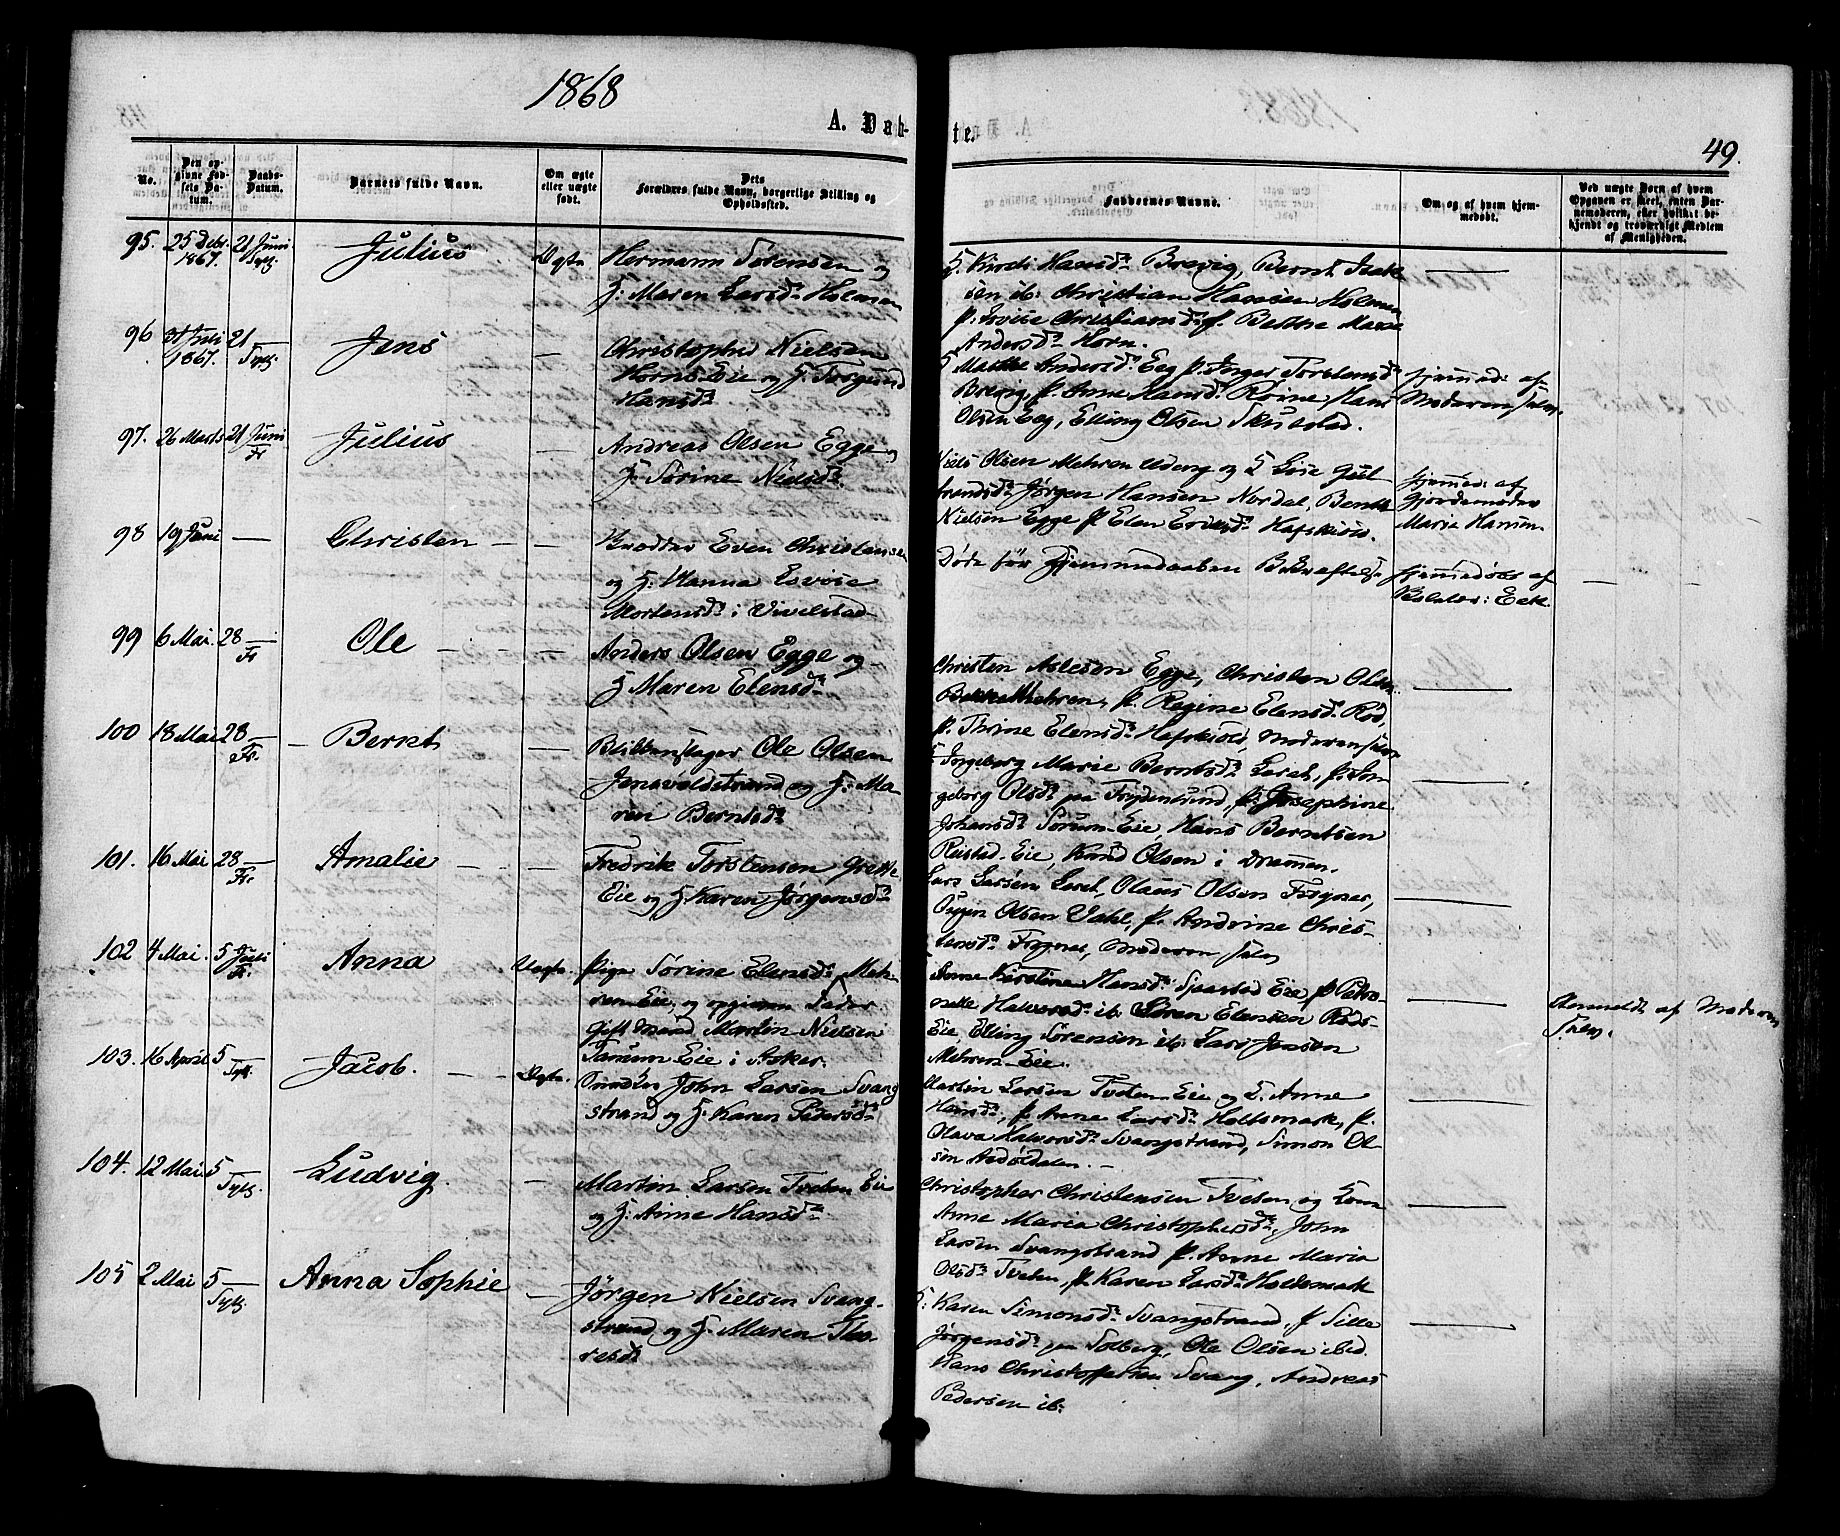 1868
A. Døb-
ten.
49.
No.
Den op-
givne Fød-
sels Da-
tum.
Daabs-
Datum.
Barnets fulde Navn.
Om ægte
eller uægte
født.
Dets
Forældres fulde Navn, borgerlige Stilling og
Opholdssted.
Faddernes Navne.
Om og af hvem hjem-
medøbt.
Ved uægte Børn af hvem
Opgaven er skeet, enten Bar-
nemoderen, eller hvilket be-
kjendt og troværdigt Medlem
af Menigheden.
95. 25 Debr. 21 Juni Julius Ægte Hermann Sørensen og
1867. Tyf.
H. Maren Larsd. Holmen
Hansd. Brevig, Bernt Isak
sen ib. Christian Hansen Holmen
p. Lovise Christiansd. p. Bethe Marie
Andersd. Horn.
96 31 Juli 21 Jens — Christopher Nielsen
1867. Tyf.
Horns Eie og H. Torgund
Hansd.
Andersd. Eeg p. Inger Torstensd.
Brevig, p. Anne Hansd. Hans
Olsen Eeg, Elling Olsen Skustad.
hjemmed. af
Moderen selv.
97. 26 Marts 21 Juni Julius — Andreas Olsen Egge og
Fr
H. Sørine Nielsd.
Niels Olsen Mehren og
Jørgen Hansen Nordal, Bernt
Nielsen Egge p. Elen Eriksd. Hafskiold.
hjemmed. af
Gjordemoder
Marie Hansen.
98 19 Juni — Christen — — Even Christensen
og H. Hanna Lovise
Mortensd. i Vivelstad
Døde før Hjemmedaabens Bekræftelse
hjemmedøbt af
Eek.
99 6 Mai. 28 Ole — — Anders Olsen Egge og
Fr
H. Maren Elensd.
Christen Aslesen Egge, Christen Olsen
Mehren, p. Regine Elensd. Rød,
p. Thrine Elensd. Hafskiold, Moderen selv
100 18 Mai 28 Bernt — Blikkenslager Ole Olsen
Fr.
Jensvoldstrand og H. Ma-
ren Berntsd.
Ingeborg Marie Berntsd. Lereh, p. In-
geborg Olsd. paa Frydenlund, p. Josephine
Johansd. Sørum-Eie, Hans Berntsen
Reistad-Eie, Knud Olsen i Drammen.
101. 16 Mai 28 Amalie — — Fredrik Torstensen Grette
Fr.
Eie og H. Karen Jørgensd.
Lars Larsen Lereh, Olaus Olsen Frogner,
Olsen Vahl, p. Andrine Chris-
tensd. Frogner, Moderen selv
102 4 Mai. 5 Juli Anna Uægte. Pige Sørine Elensd. Meh-
Fr.
ren Eie, og opgiven Fader
Gift Mand Martin Nielsen
Tanum Eie i Asker.
Anne Kirstine Hansd. Sjaastad Eie p. Petro-
nelle Halvorsd. ib. Søren Elensen Røds-
Eie, Elling Sørensen ib. Lars Jensen
Mehren-Eie.
Anmeldt af Moderen
Selv.
103. 16 April 5 Jacob. — Ægte. John Larsen Svang
Tyf.
strand og H. Karen Pedersd.
Martin Larsen Tveten Eie og H. Anne
Hansd., p. Anne Larsd. Holtsmark, p.
Olava Halvorsd. Svangstrand, Simon Ol-
sen
104. 12 Mai 5 Ludvig. — Martin Larsen Tveten Eie
Tyf.
og H. Anne Hansd.
Christopher Christensen Tveten og Kone
Anne Maria Christophersd., John
Larsen Svangstrand p. Anne Maria
Olsd. Tveten, p. Karen Larsd. Holtsmark
105 2 Mai 5 Anna Sophie — Jørgen Nielsen Svang-
Tyf.
strand og H. Maren Tho-
resd.
H. Karen Simonsd. Svangstrand, p. Sille
Jørgensd. paa Solberg, Ole Olsen ibid.
Hans Christophersen Svang, Andreas
Pedersen ib.